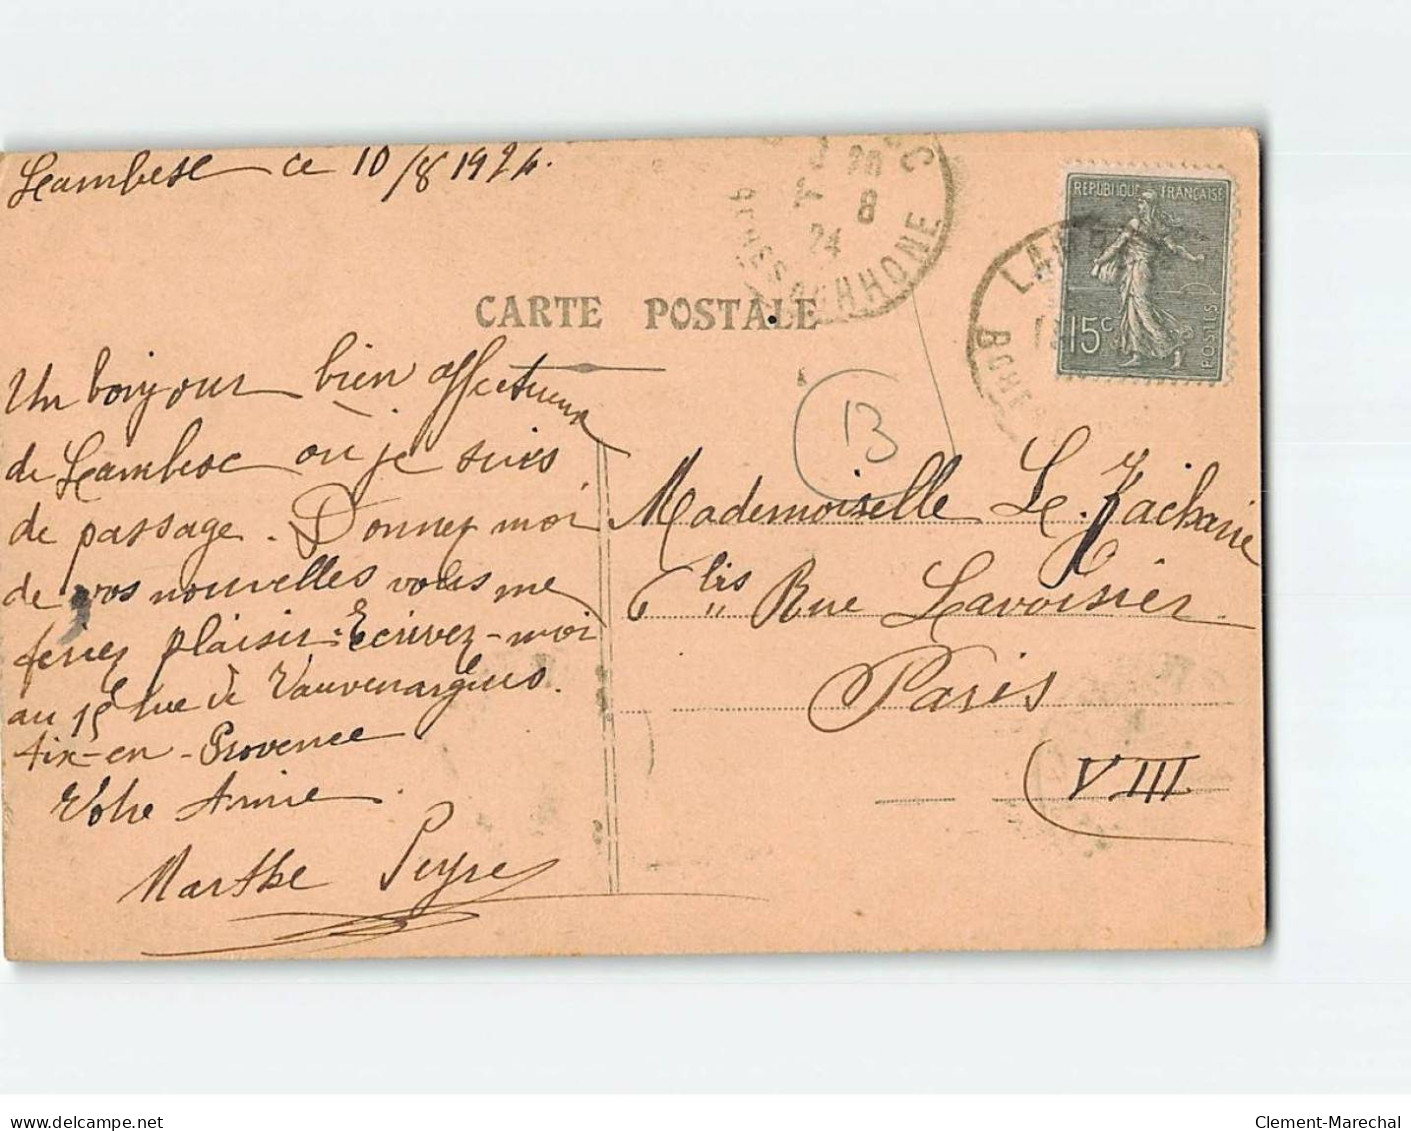 Lambesc ce 10/8 1924.
C
20
8
24
BOUCHES DU RHONE
REPUBLIQUE FRANÇAISE
15c
POSTES
CARTE POSTALE
B
Un bonjour bien affectueux
de Lambesc où je suis
de passage. Donnez moi
de vos nouvelles vous me
ferez plaisir. Ecrivez-moi
au 15 rue de Vauvenargues.
Aix-en-Provence
Votre Amie
Marthe Peyre
Mademoiselle Le Zacharie
6 bis Rue Lavoisier
Paris
VIII
www.delcampe.net
Clement-Marechal